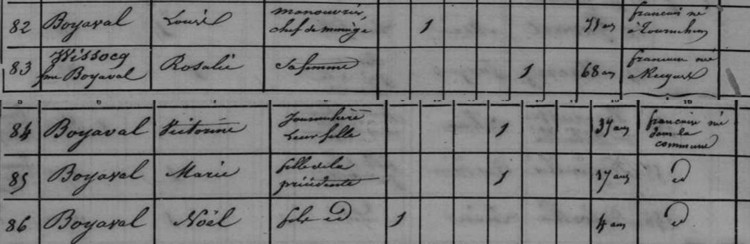 82 Boyaval Louis manouvrier chef de ménage 1 71 ans français né à Tournehem
83 Wissocq fme Boyaval Rosalie sa femme 1 68 ans française né à Recques
84 Boyaval Victorine Journalière Leur fille 1 37 ans française né dans la commune
85 Boyaval Marie fille de la précédente 1 17 ans id
86 Boyaval Noël fils id 1 4 ans id